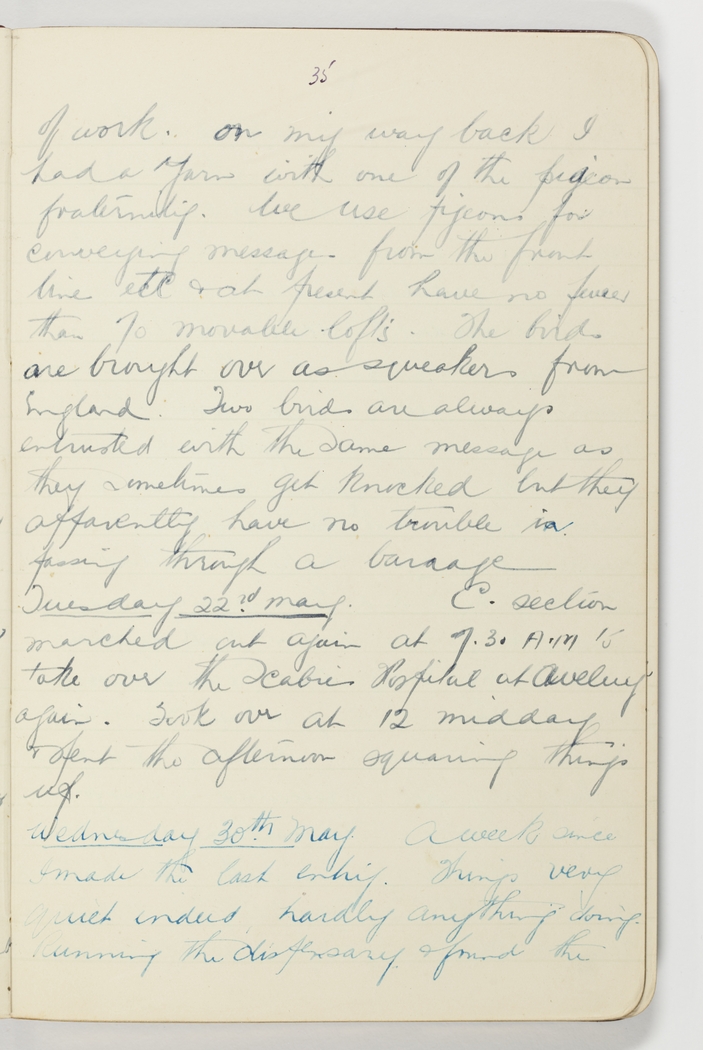 35
of work. on my way back I
had a Yarn with one of the pigeon
fraternity. We use pigeons for
conveying messages from the front
line etc & at present have no fewer
than 70 movable lofts. The birds
are brought over as squeakers from
England. Two birds are always
entrusted with the same message as
they sometimes get knocked but they
apparently have no trouble in
passing through a barrage
Tuesday 22nd May. C. section
marched out again at 7.30 A.M to
take over the Scabies Hospital at Aveluy
again. Took over at 12 midday
& spent the afternoon squaring things
up.
Wednesday 30th May. A week since
I made the last entry. Things very
quiet indeed, hardly anything doing.
Running the dispensary & found the